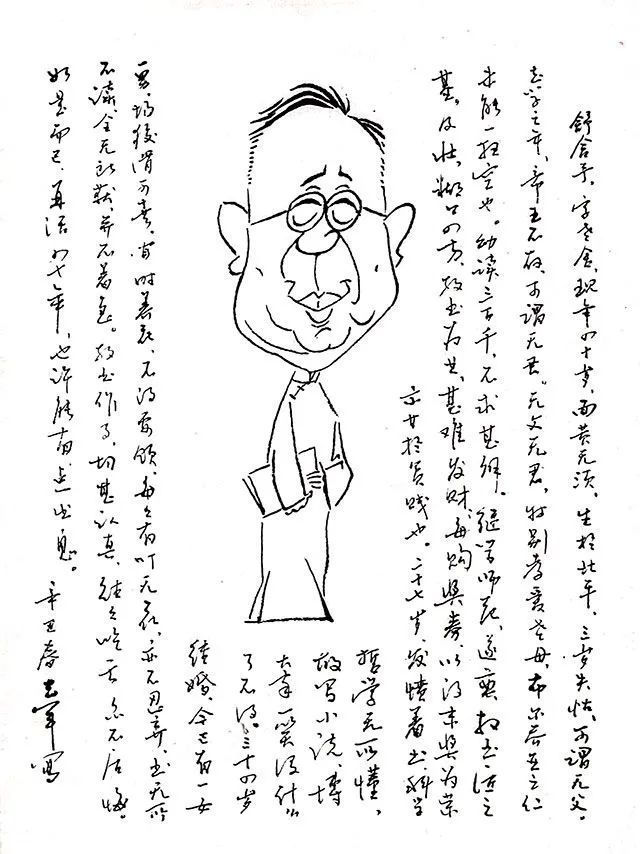 舒舍予，字老舍，现年四十岁，面黄无须，生於北平，三岁失怙，可谓无父。
志学之年，帝王不存，可谓无君。无父无君，特别孝爱老母，布尔乔亚之仁
未能一扫空也。幼读三百千，不求甚解。继学师范，遂奠教书匠之
基。及壮，糊口四方，教书为业，甚难发财，每购奖券，以得末奖为荣
示甘於贫贱也。二十七岁，发愤著书，科学
哲学无所懂，
故写小说，博
大家一笑没什么
了不得。三十四岁
结婚，今已有一女
一男，均狡猾可喜，闲时养花，不得要领，每每有叶无花，亦不忍弃，书无所
不读，全无所获，并不着急。教书作事，均甚认真，往往吃亏，亦不后悔。
如是而已，再活四十年，也许能有点出息。辛巳春 写